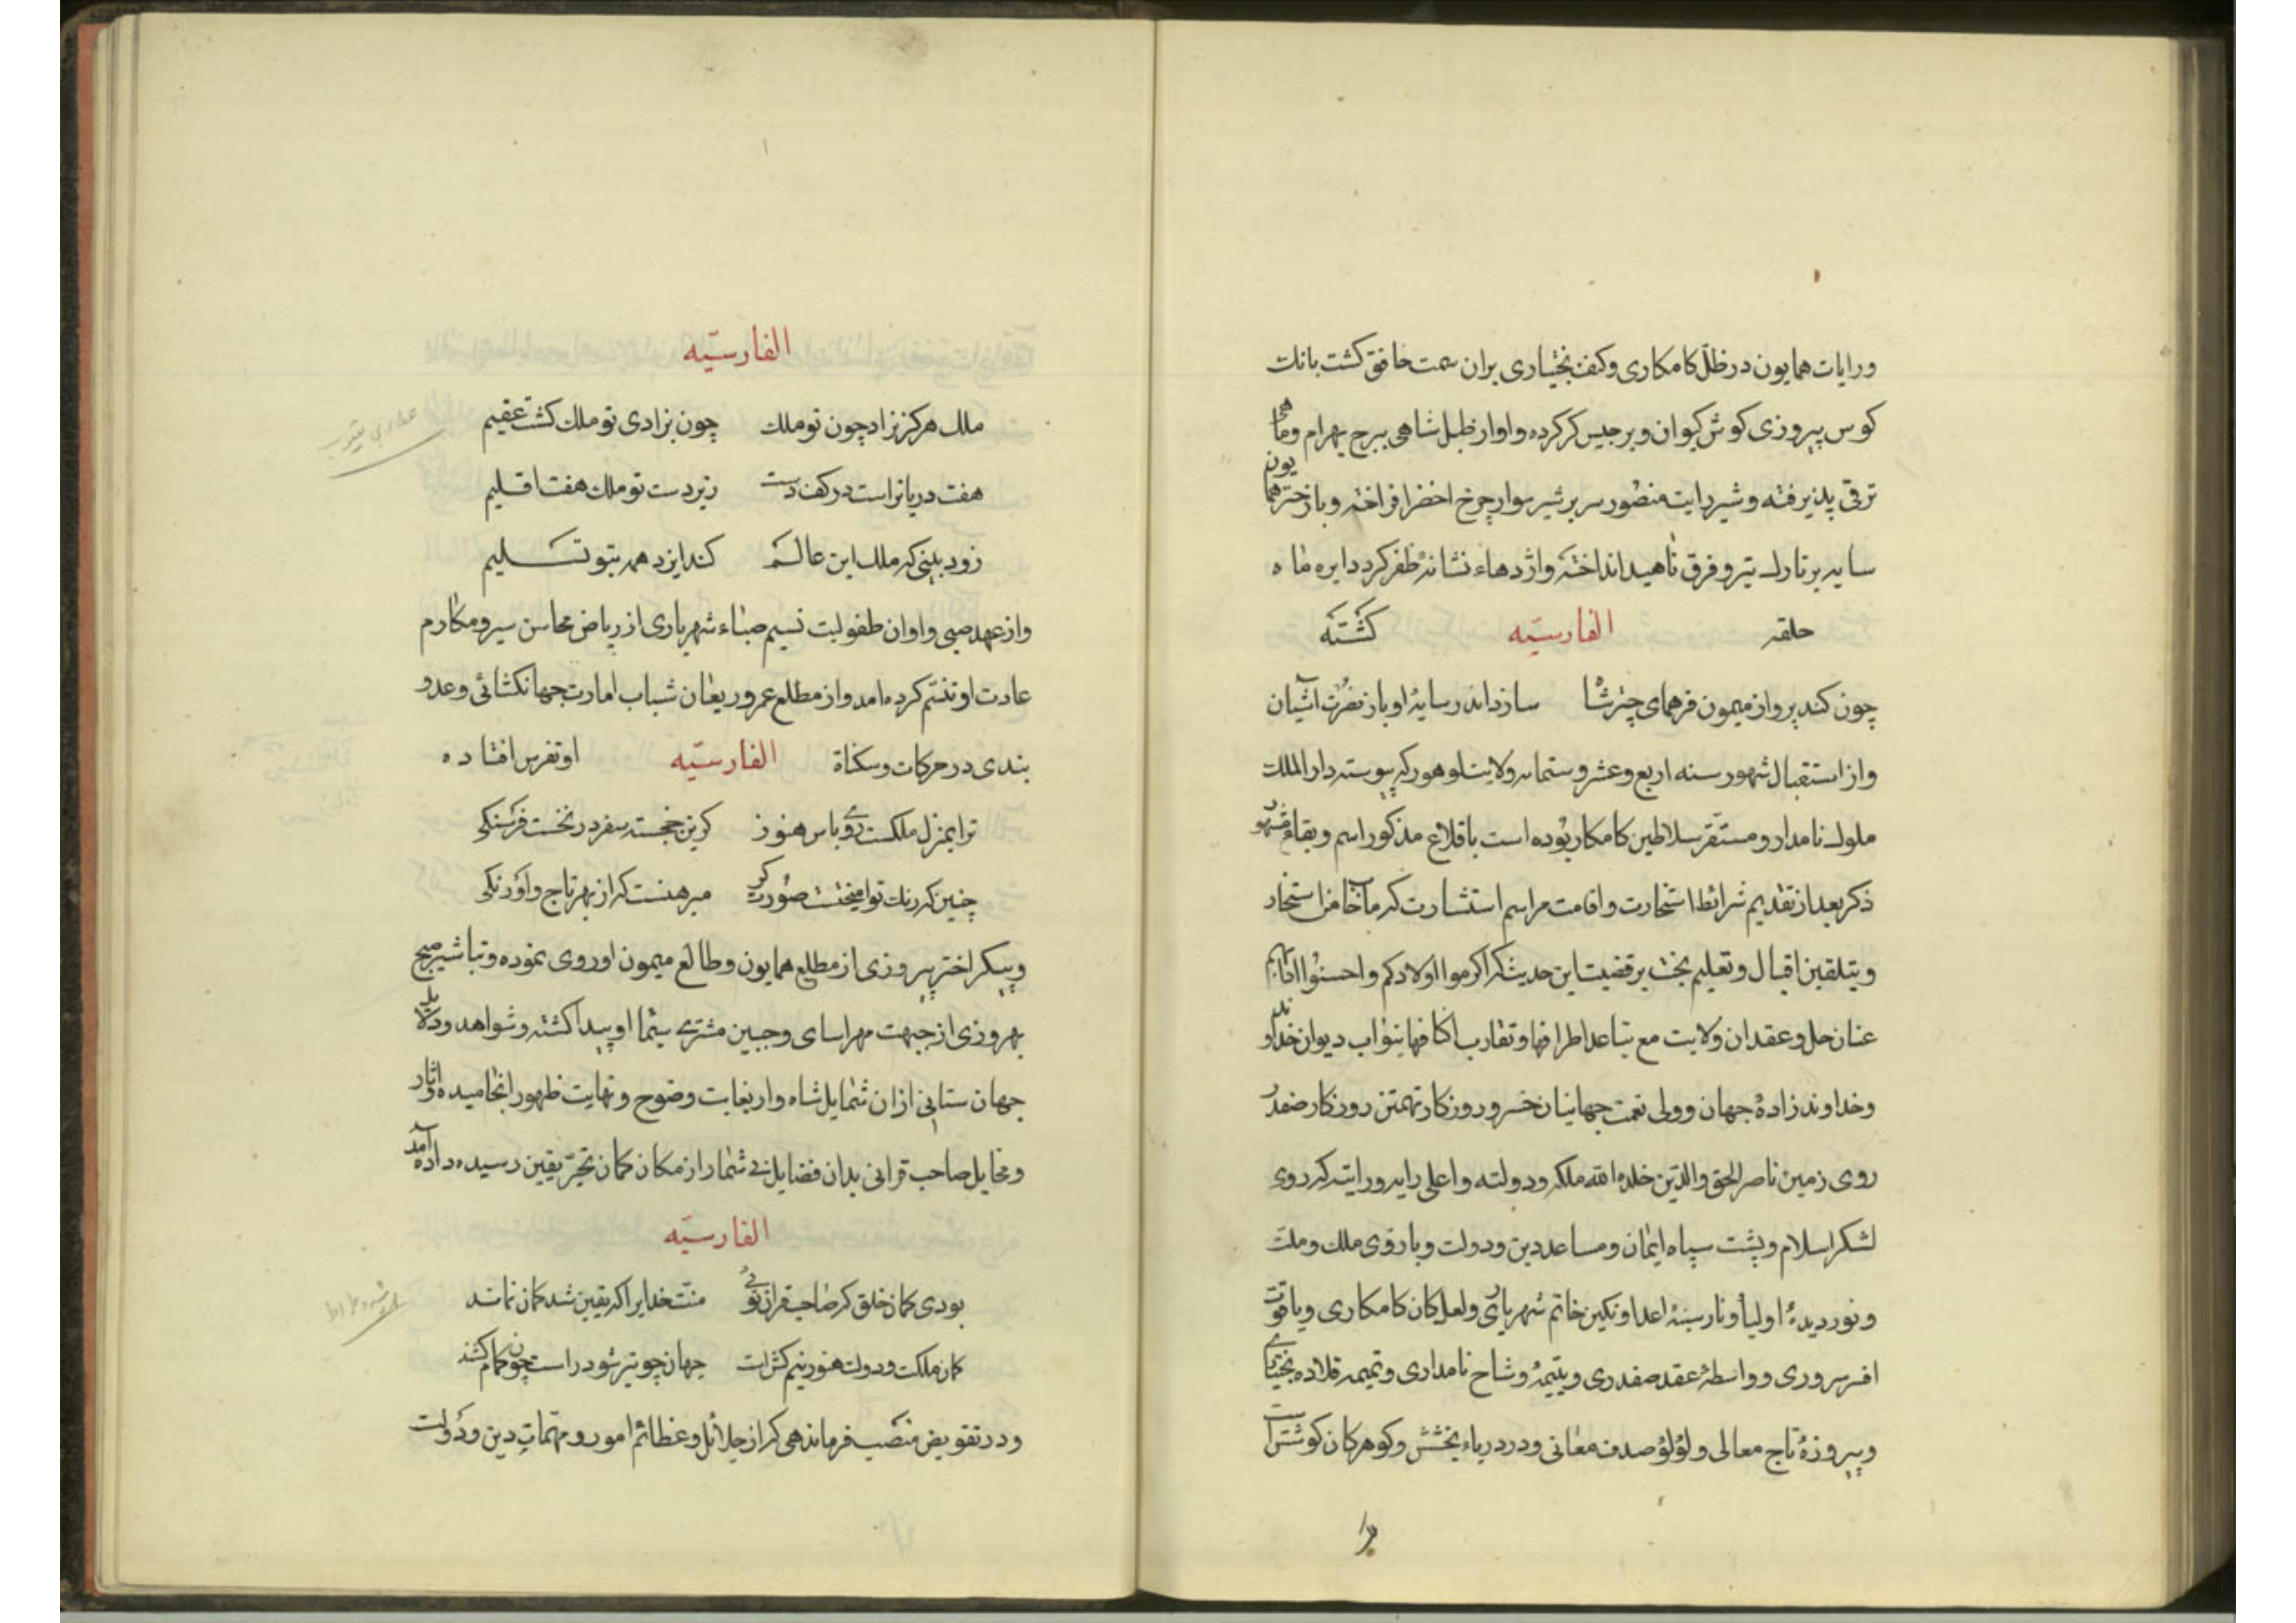 ورایات همایون در ظل کامکاری وکنف بختیاری بران سمت خافق کشت بانک
کوس پیروزی کوش کیوان وبرجیس کر کرده واواز طبل شاهی ببرج بهرام وماهی
ترقی پذیرفته وشیر رایت منصور سر بر شیر سوار چرخ اخضر افراخته وباز چتر همایون
سایه بر تارک تیر وفرق ناهید انداخته واژدهاء نشانهٔ ظفر کرد دایره ماه
حلقه الفارسیّه کشته
چون کند پرواز میمون فر همای چتر شاه سازد اندر سایهٔ او باز نصرت آشیان
واز استقبال شهور سنه اربع وعشر وستمایه ولایت لوهور که پیوسته دار الملک
ملوک نامدار ومستقر سلاطین کامکار بوده است با قلاع مذکور اسم وبقاع مشهور
ذکر بعد از تقدیم شرائط استخارت واقامت مراسم استشارت که ما خاب من استخار
وبتلقین اقبال وتعلیم بخت بر قضیت این حدیث که اکرموا اولادکم واحسنوا آدابهم
عنان حل وعقد ان ولایت مع تباعد اطرافها وتقارب اکنافها بنواب دیوان خداوند
وخداوند زادهٔ جهان وولی نعمت جهانیان خسرو روزکار تهمتن روزکار صفدر
روی زمین ناصر الحق والدین خلد الله ملکه ودولته واعلی رایه ورایته که روی
لشکر اسلام وپشت سپاه ایمان ومساعد دین ودولت وبازوی ملک وملت
ونور دیدهٔ اولیا ونار سینهٔ اعدا ونکین خاتم شهریاری ولعل کان کامکاری ویاقوت
افسر سروری وواسطهٔ عقد صفدری ویتیمهٔ وشاح نامداری وتمیمه قلاده بختیاری
وپیروزهٔ تاج معالی ولؤلؤ صدف معانی ودر دریاء بخشش وکوهر کان کوشش است
الفارسیّه
ملک هرکز نزاد چون تو ملک چون بزادی تو ملک کشت عقیم
هفت دریا تراست در کف دست زیر دست تو ملک هفت اقلیم
زود بینی که ملک این عالم کند ایزد همه بتو تسلیم
واز عهد صبی واوان طفولیت نسیم صباء شهریاری از ریاض محاسن سیر ومکارم
عادت او تنسّم کرده امد واز مطلع عمر وریعان شباب امارت جهانکشائی وعدو
بندی در حرکات وسکناة الفارسیّه او تفرس افتاده
ترا بمنزل ملکست روی باس هنوز کزین خجسته سفر در نخست فرسنکی
چنین که رنک تو امیخت صورت کر مبرهنست که از بهر تاج واورنکی
وپیکر اختر پیروزی از مطلع همایون وطالع میمون او روی نموده وتباشیر صبح
بهروزی از جبهت مهراسای وجبین مشتری سیما او پیدا کشته وشواهد ودلایل
جهان ستانی ازان شمایل شاه وار بغایت وضوح ونهایت ظهور انجامیده واثار
ومخایل صاحب قرانی بدان فضایل بی شمار از مکان کمان بتحیّز یقین رسیده داده آمد
الفارسیّه
بودی کمان خلق که صاحب قران توئی منت خدایرا که یقین شد کمان نماند
کمان ملکت ودولت هنوز نیم کش است جهان چو تیر شود راست چون تمام کشند
ودر تفویض منصب فرماندهی که از جلائل وعظائم امور ومهمّات دین ودولت